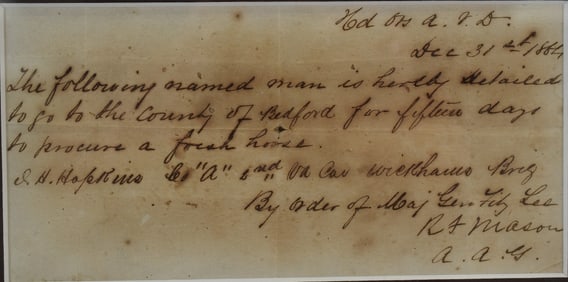 Hd Qrs A. V. D.
Dec 31st 1864
The following named man is hereby detailed
to go to the County of Bedford for fifteen days
to procure a fresh horse.
H. Hopkins Co "A" 2nd Va Cav Wickhams Brig
By order of Maj Gen Fitz Lee
R F Mason
A. A. G.